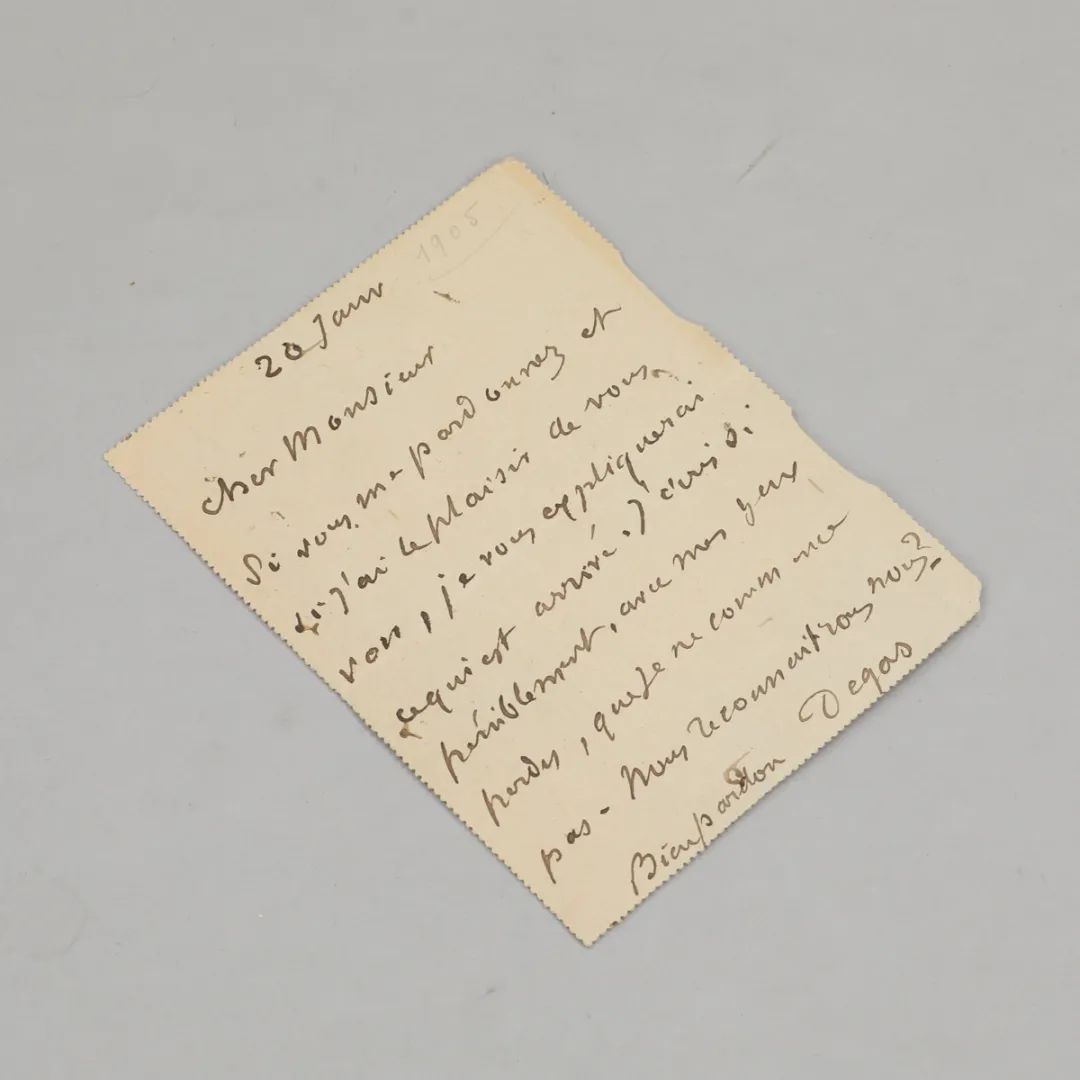 1905
20 Janv
cher Monsieur
Si vous me pardonnez et
si j'ai le plaisir de vous
voir, je vous expliquerai
ce qui est arrivé. J'écris si
péniblement, avec mes yeux
perdus, que je ne commence
pas - Nous reconnaitrons nous?
Bien pardon Degas